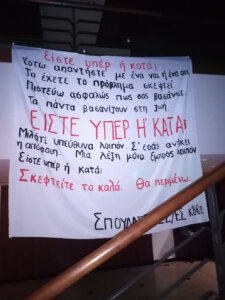 Είστε υπέρ ή κατά;
Έστω απαντήστε με ένα ναι ή ένα όχι.
Το έχετε το πρόβλημα σκεφτεί.
Πιστεύω ασφαλώς πως σας βασάνισε.
Τα πάντα βασανίζουν στη ζωή.
ΕΙΣΤΕ ΥΠΕΡ Ή ΚΑΤΑ;
Μιλάτε υπεύθυνα λοιπόν. Σ' εσάς ανήκει
η απόφαση. Μια λέξη μόνο εμπρός λοιπόν
Είστε υπέρ ή κατά;
Σκεφτείτε το καλά. Θα περιμένω.
ΚΘΒΕ